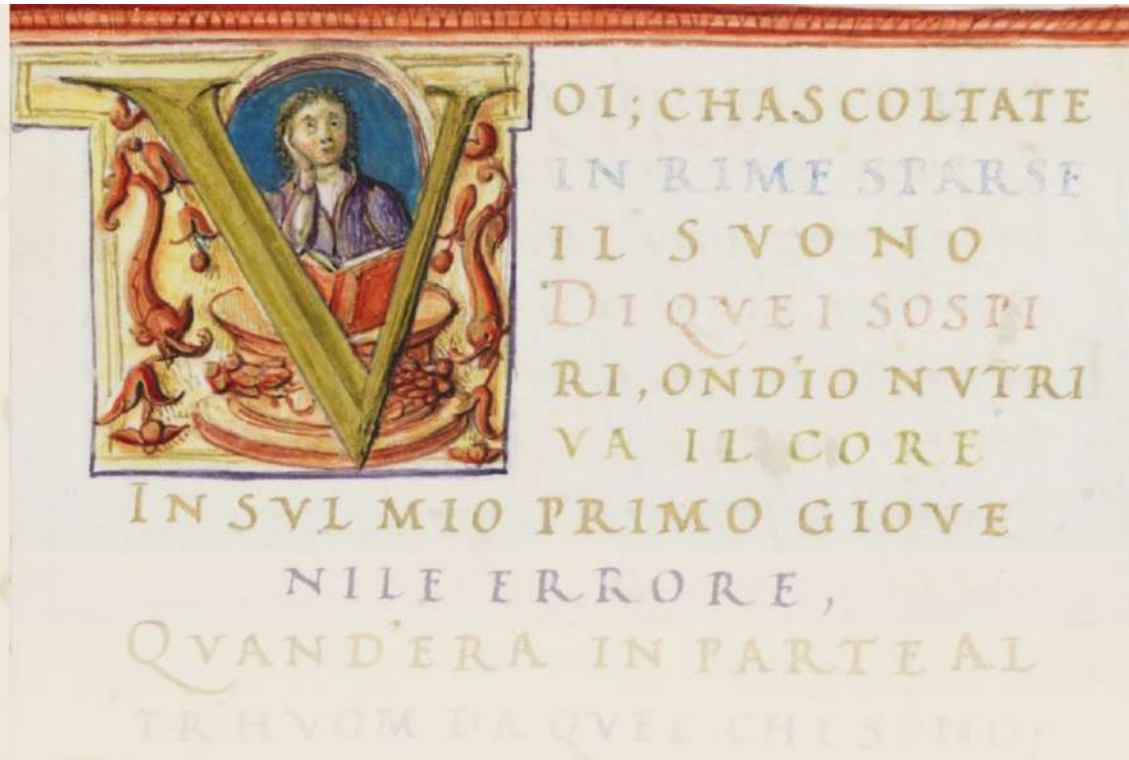 VOI; CHASCOLTATE
IN RIME SPARSE
IL SVONO
DI QVEI SOSPI
RI, OND'IO NVTRI
VA IL CORE
IN SVL MIO PRIMO GIOVE
NILE ERRORE,
QVAND'ERA IN PARTE AL
TR HVOM DA QVEL CHI SONO;